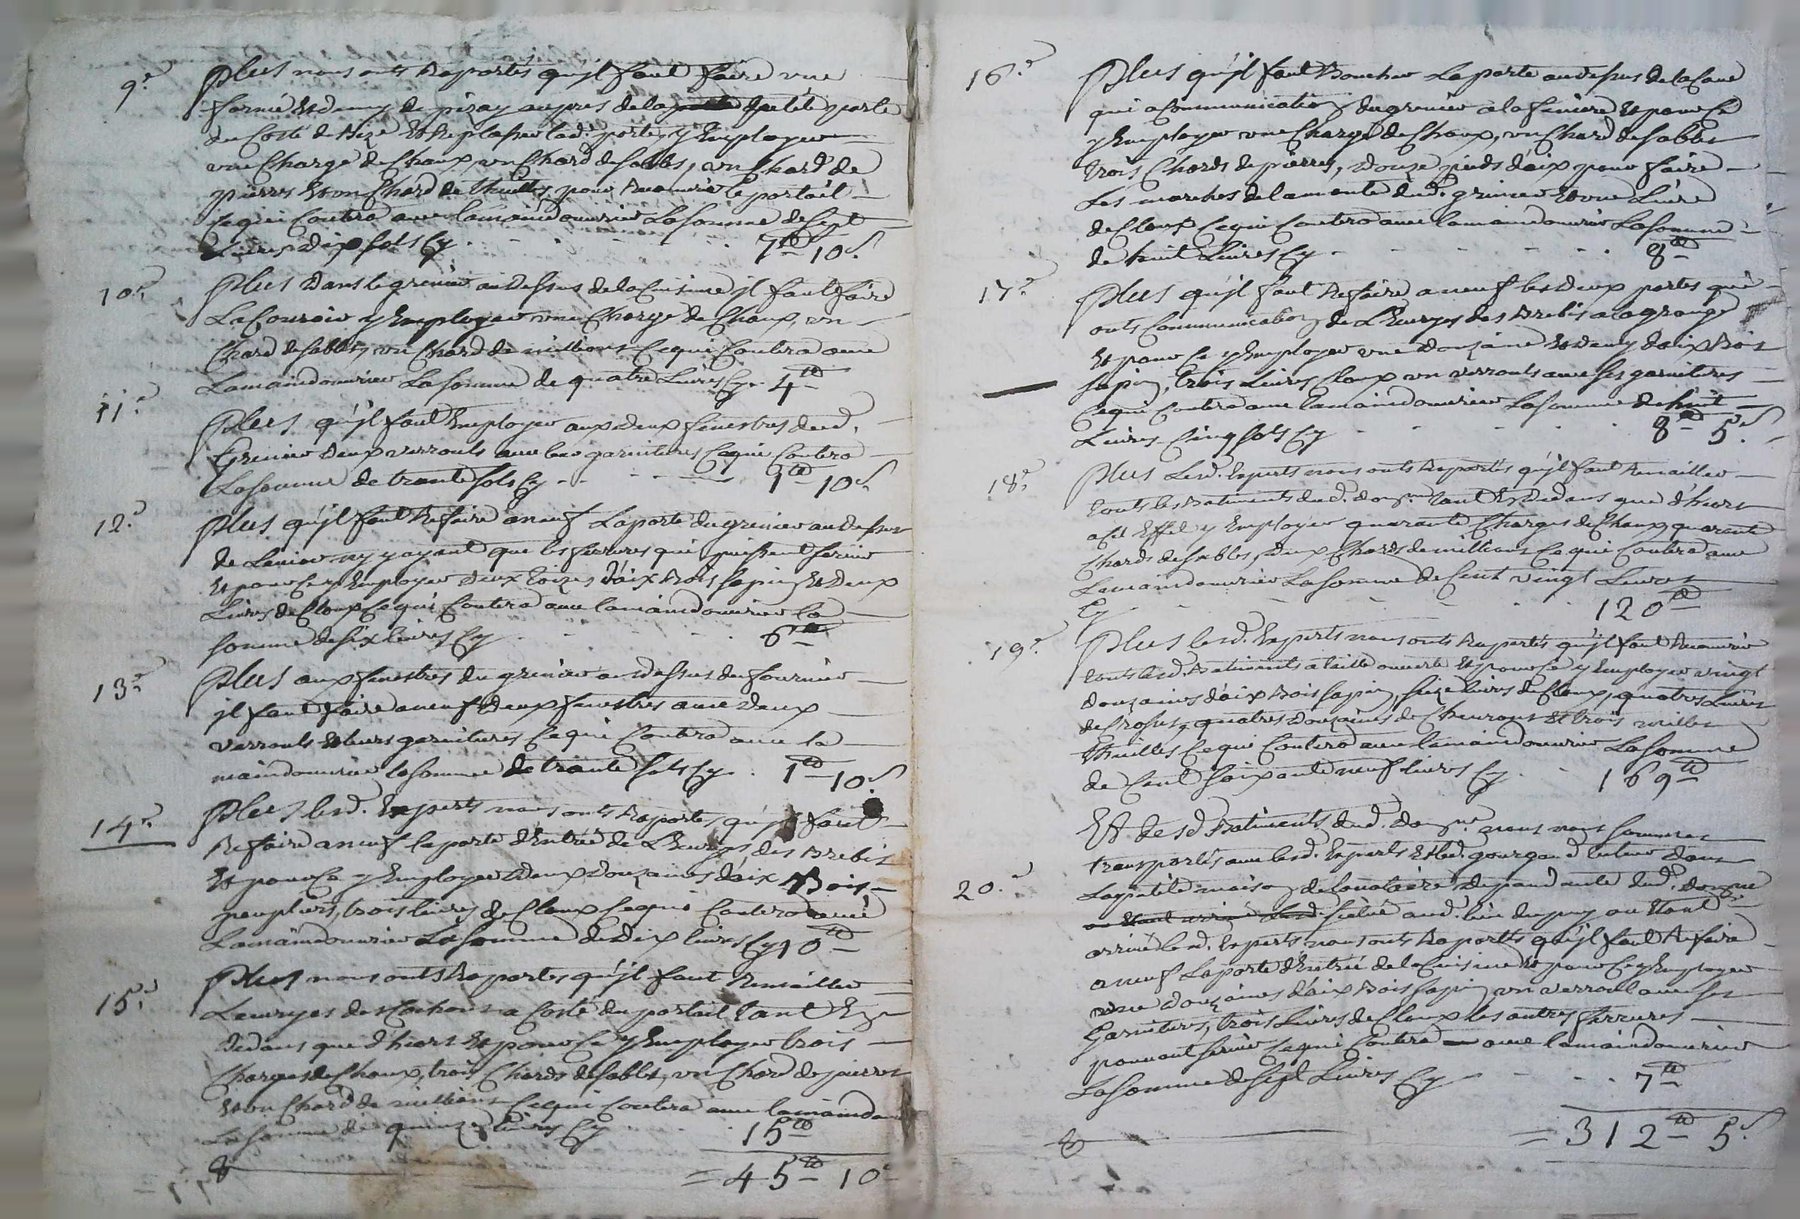 9.e Plus nous onts Raportés qu'jl faut faire une
formé et demy de pizay aupres de la petite porte
du Costé de Bize et Replasser lad.e porte, y Employer
une Charge de Chaux, un Chard de sables, un Chard de
pierres et un Chard de thuilles pour Recouvrir le portail
Cequi Coutera avec lamaindouvrier La somme de sept
Livres dix sols Cy 7tt 10s.
10.e Plus Dans le grenier audessus de la Cuisine jl faut faire
La Couroir y Employer une Charge de Chaux, un
Chard de sables, un Chard de millions Cequi Coutera avec
Lamaindouvrier La somme de quatre Livres Cy 4tt
11.e Plus qu'jl faut Employer aux deux fenestres dud.
Grenier deux verrouls avec leurs garnitures Cequi Coutera
La somme de trante sols Cy 1tt 10s.
12.e Plus qu'jl faut Refaire aneuf La porte du grenier audessus
de Levier ny y ayant que les ferrures qui puissent servir
et pour Ce y Employer deux toizes d'aix Bois sapin et deux
Livres de Cloux Cequi Coutera avec lamaindouvrier la
somme de six livres Cy 6tt
13.e Plus aux fenestres du grenier audessus du fournier
jl faut faire aneuf deux fenestres avec deux
verrouls et leurs garnitures Cequi Coutera avec la
maindouvrier la somme de trante sols Cy 1tt 10s
14.e Plus lesd. Experts nous onts Raportés qu'jl faut
Refaire aneuf la porte d'Entrée de L'Euryes des Brebis
et pour Ce y Employer deux douzaines d'aix Bois
peupliers, trois livres de Cloux Cequi Coutera avec
Lamaindouvrier La somme de dix livres Cy 10tt
15.e Plus nous onts Raportés qu'jl faut Remailler
Leuryes des Cochons a Costé du portail tant En
dedans que d'hiors et pour Ce y Employer trois
Charges de Chaux, trois Chards de sables, un Chard de pierres
et un Chard de millions Cequi Coutera avec lamaindou
La somme de quinze livres Cy 15tt
= 45tt 10s
16.e Plus qu'jl faut Boucher La porte audessus de la Cave
qui a Communication du grenier a la feniere et pour Ce
y Employer une Charge de Chaux, un Chard de sables
trois Chards de pierres, douze pieds d'aix pour faire
Les marches de la monté dud. grenier et une Livre
de Cloux Cequi Coutera avec lamaindouvrier La somme
de huit Livres Cy 8tt
17.e Plus qu'jl faut Refaire aneuf les deux portes qui
onts Communication de L'Euryes des Brebis a la grange
et pour Ce y Employer une douzaine et demy d'aix Bois
sapin, trois Livres Cloux un verrouls avec ses garnitures
Cequi Coutera avec lamaindouvrier La somme de huit
Livres Cinq sols Cy 8tt 5s.
18.e Plus Lesd. Experts nous onts Raportés qu'jl faut Remailler
touts les Batiments dud. dom.ne tant En dedans que d'hiors
a Cet Effet y Employer quarante Charges de Chaux, quarente
Chards de sables, deux Chards de millions Cequi Coutera avec
Lamaindouvrier La somme de Cent vingt Livres
Cy 120tt
19.e Plus lesd. Experts nous onts Raportés qu'jl faut Recouvrir
touts lesd. Batiments a taille ouverte et pour Ce y Employer vingt
douzaines d'aix Bois sapin, seize livres de Cloux, quatres Livres
de Croses, quatres douzaines de Chevrons et trois milles
thuilles Cequi Coutera avec lamaindouvrier La somme
de Cent soixante neuf livres Cy 169tt
Et desd Batiments dud. dom.ne nous nous sommes
transportés avec lesd. Experts et led. gourgand luteur dans
20.e La petite maison de Locataire dependante dud. domaine
située aud. lieu du puy ou Etant
arrivé lesd. Experts nous onts Raportés qu'jl faut Refaire
aneuf La porte d'Entrée de la Cuisine et pour Ce y Employer
une douzaines d'aix Bois sapin, un verroul avec ses
Garnitures, trois Livres de Cloux les autres ferrures
pouvant servir Cequi Coutera avec lamaindouvrier
La somme de sept Livres Cy 7tt
= 312tt 5s.